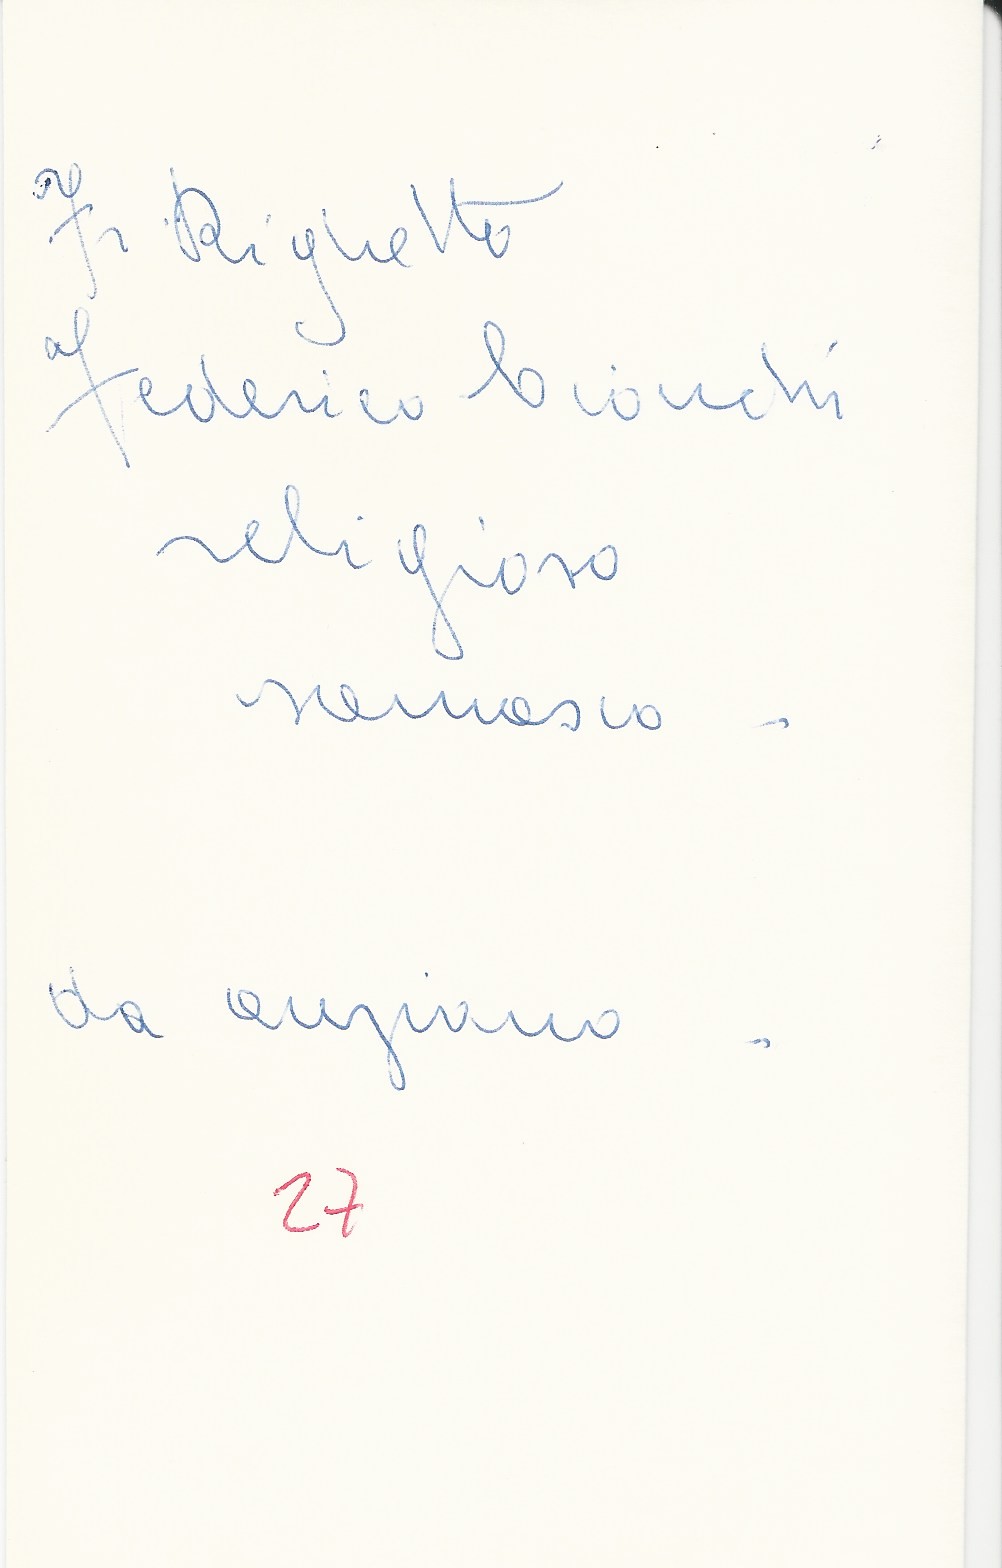 Fr Righetto
Federico bianchi
religioso
somasco -
da anziano -
27